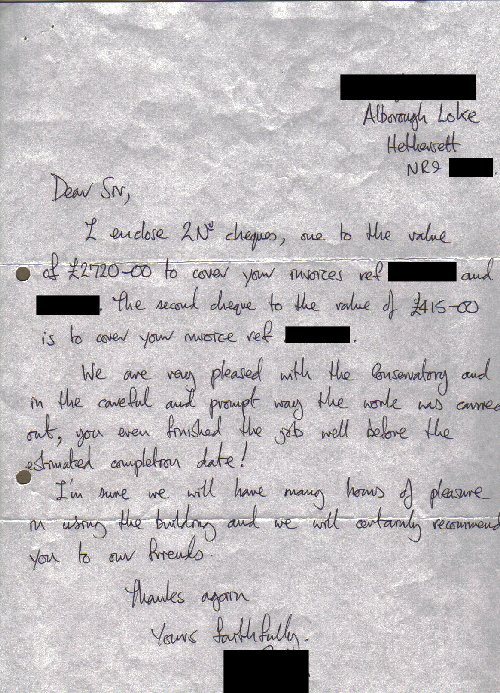 Alborough Loke
Hethersett
NR9
Dear Sir,
I enclose 2Nº cheques, one to the value
of £2720-00 to cover your invoices ref and
. The second cheque to the value of £415-00
is to cover your invoice ref .
We are very pleased with the Conservatory and
in the careful and prompt way the work was carried
out, you even finished the job well before the
estimated completion date!
I'm sure we will have many hours of pleasure
in using the building and we will certainly recommend
you to our friends.
Thanks again
Yours faithfully.